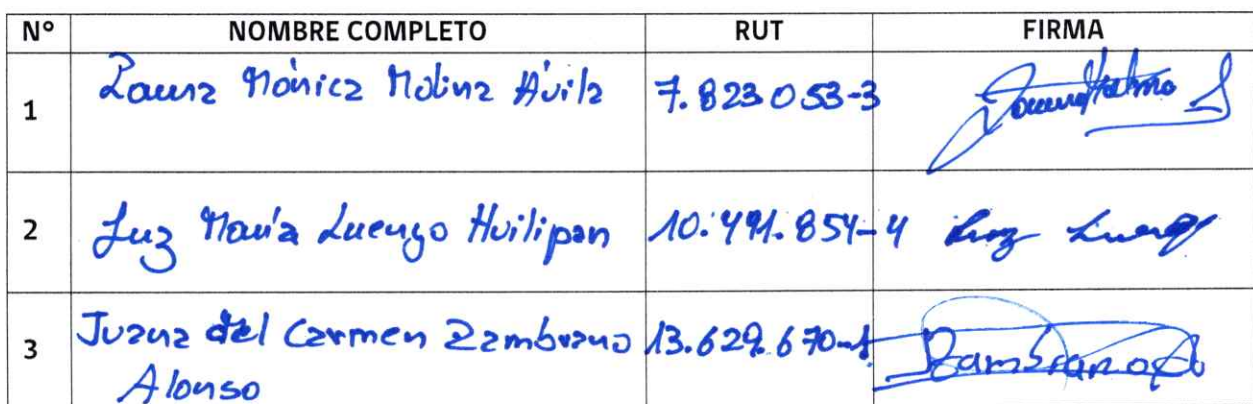 N° NOMBRE COMPLETO RUT FIRMA
1 Laura Mónica Molina Ávila 7.823.053-3
2 Luz María Luengo Huilipan 10.491.854-4 Luz Luengo
3 Juana del Carmen Zambrano 13.629.670-1 Zambrano
Alonso